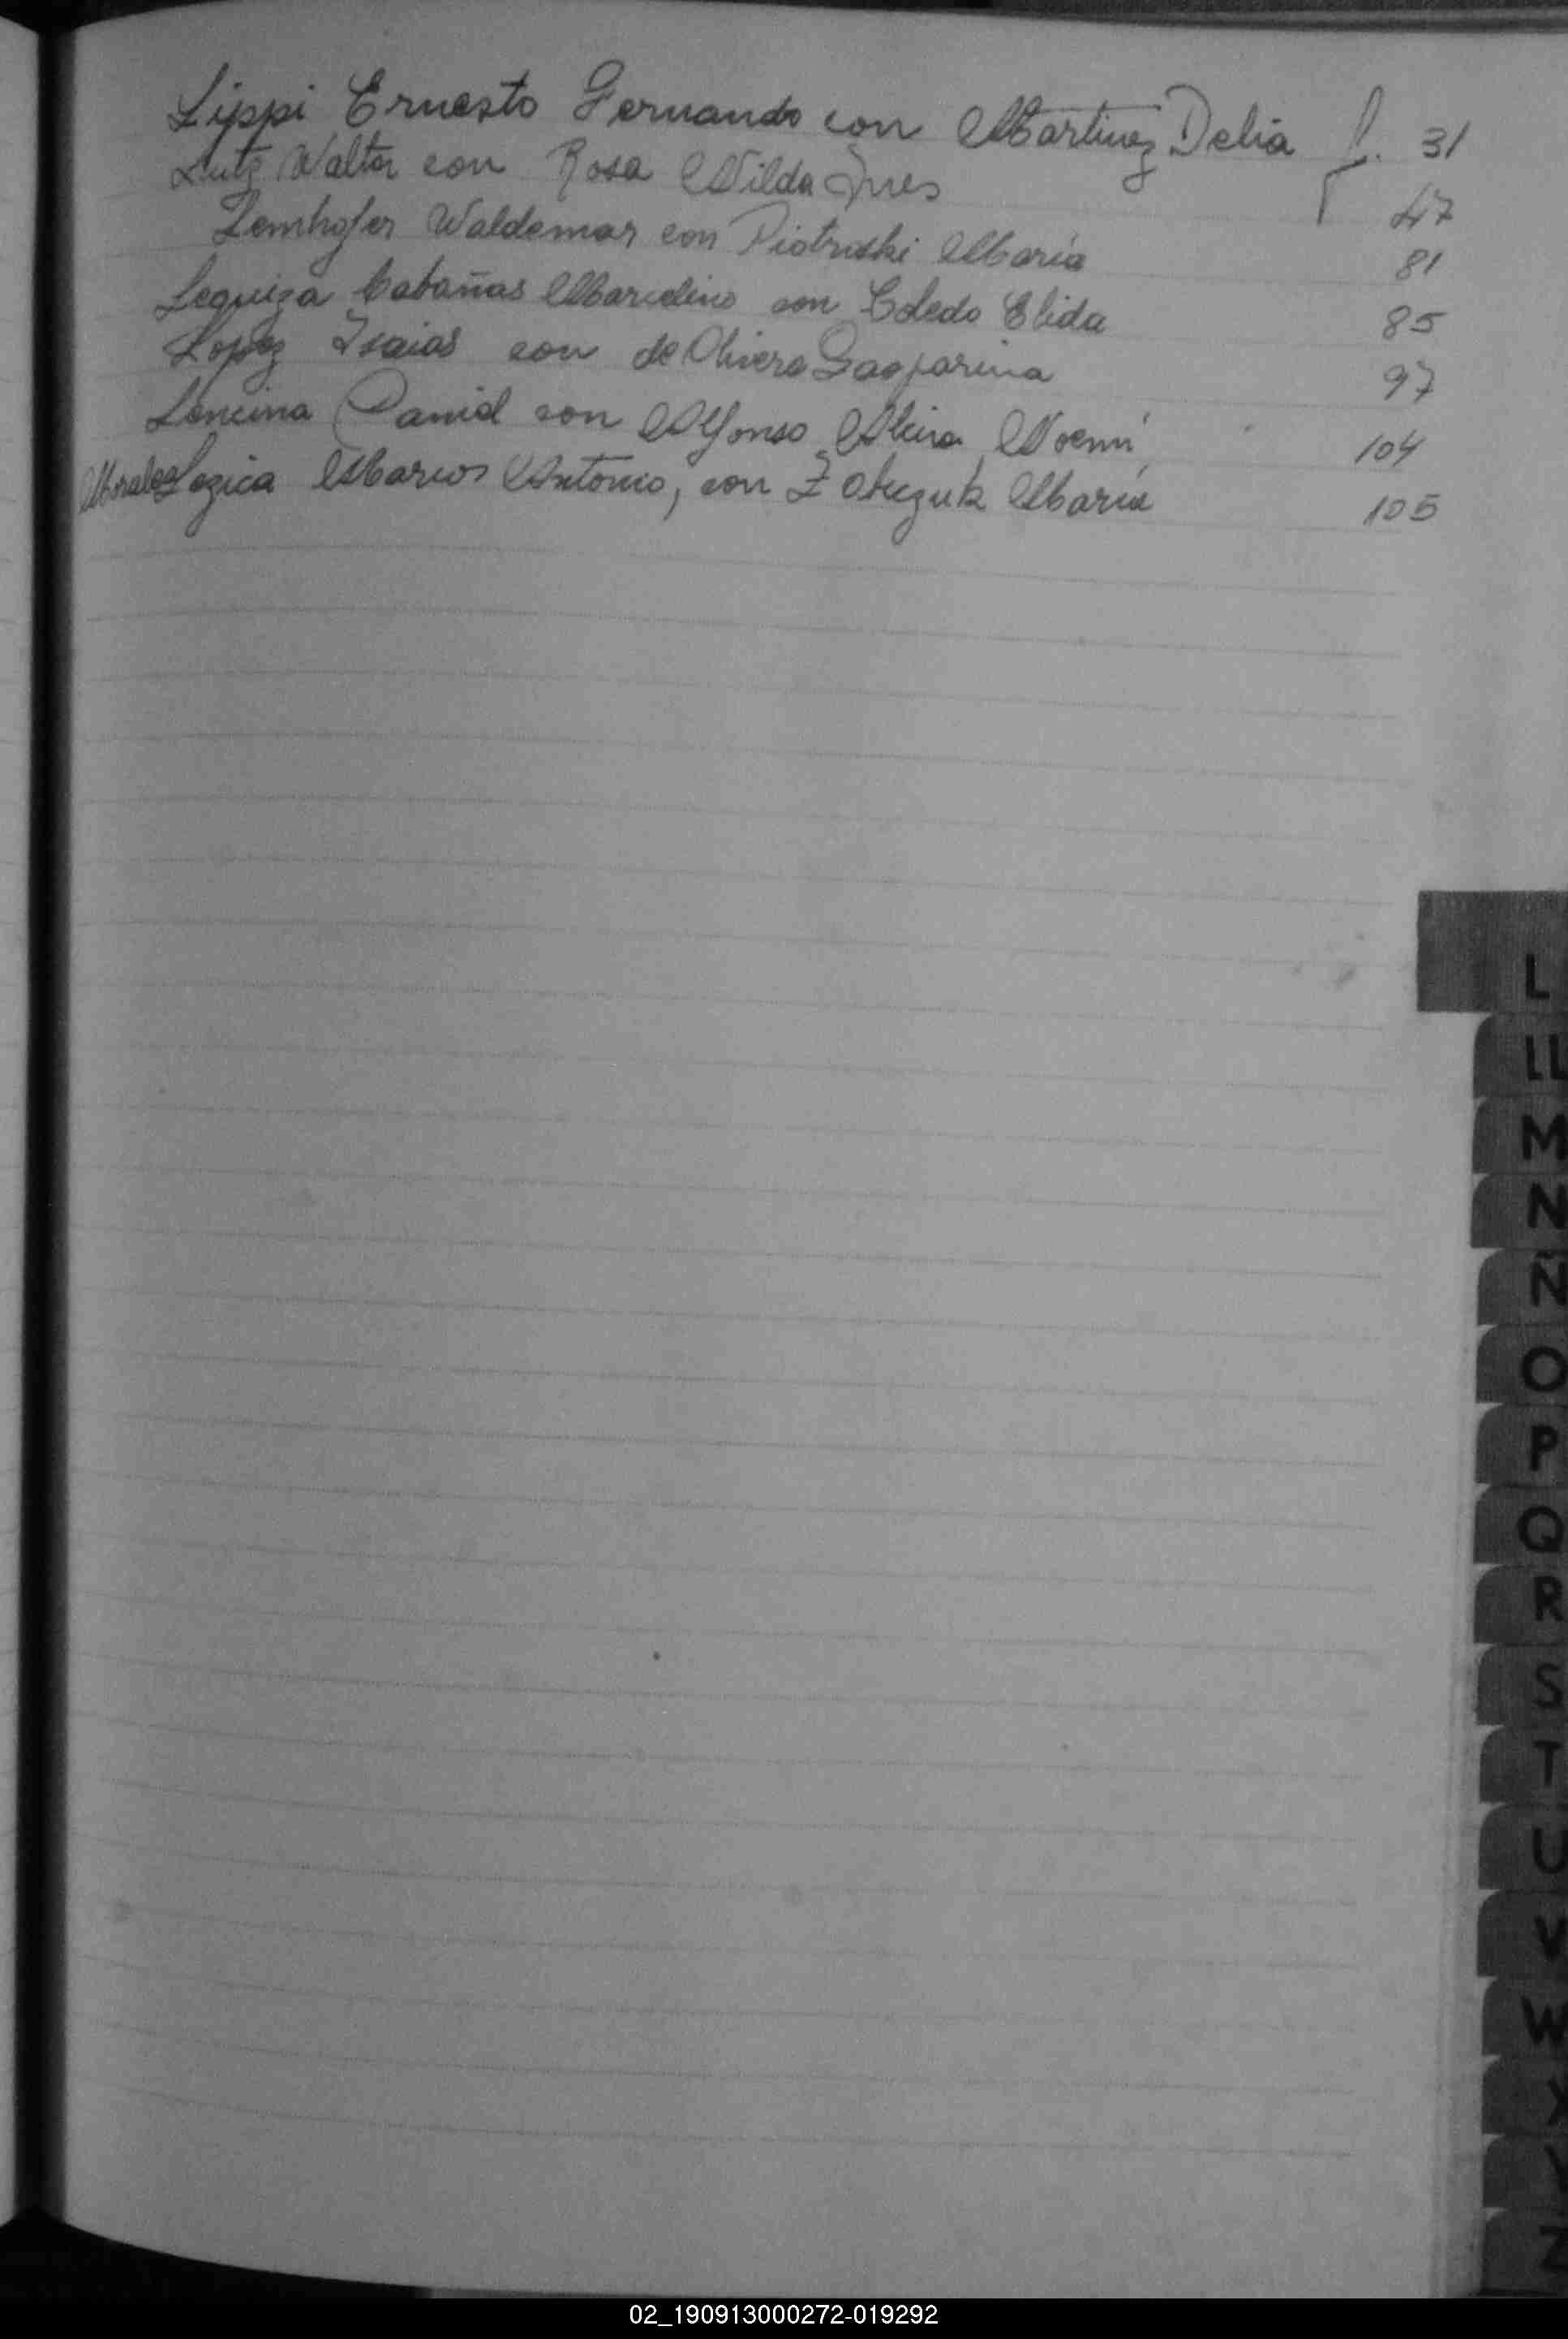 Lippi Ernesto Fernando con Martinez Delia f. 31
Lutz Walter con Rosa Nilda Ines 47
Lemhofer Waldemar con Piotroski Maria 81
Leguiza Cabañas Marcelino con Toledo Elida 85
Lopez Isaias con de Olivera Gasparina 97
Lencina Daniel con Alfonso Noemí 104
Morales Lezica Marcos Antonio, con María 105
L
LL
M
N
Ñ
O
P
Q
R
S
T
U
V
W
X
Y
Z
02_190913000272-019292